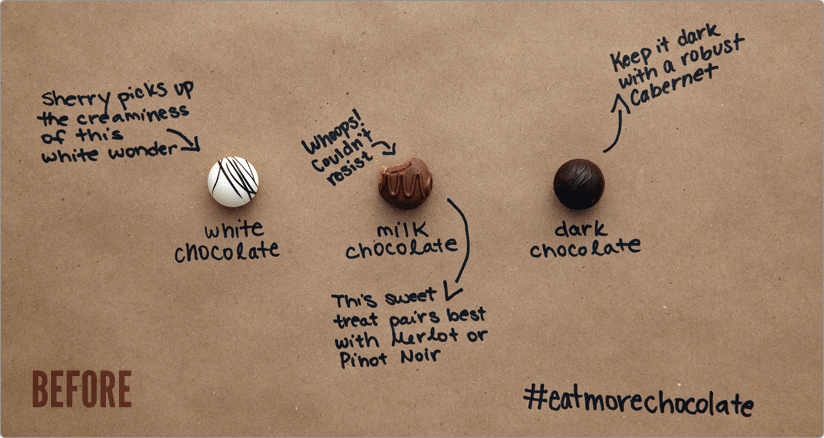 Sherry picks up
the creaminess
of this
white wonder
white
chocolate
Whoops!
Couldn't
resist
milk
chocolate
This sweet
treat pairs best
with Merlot or
Pinot Noir
Keep it dark
with a robust
Cabernet
dark
chocolate
BEFORE
#eatmorechocolate